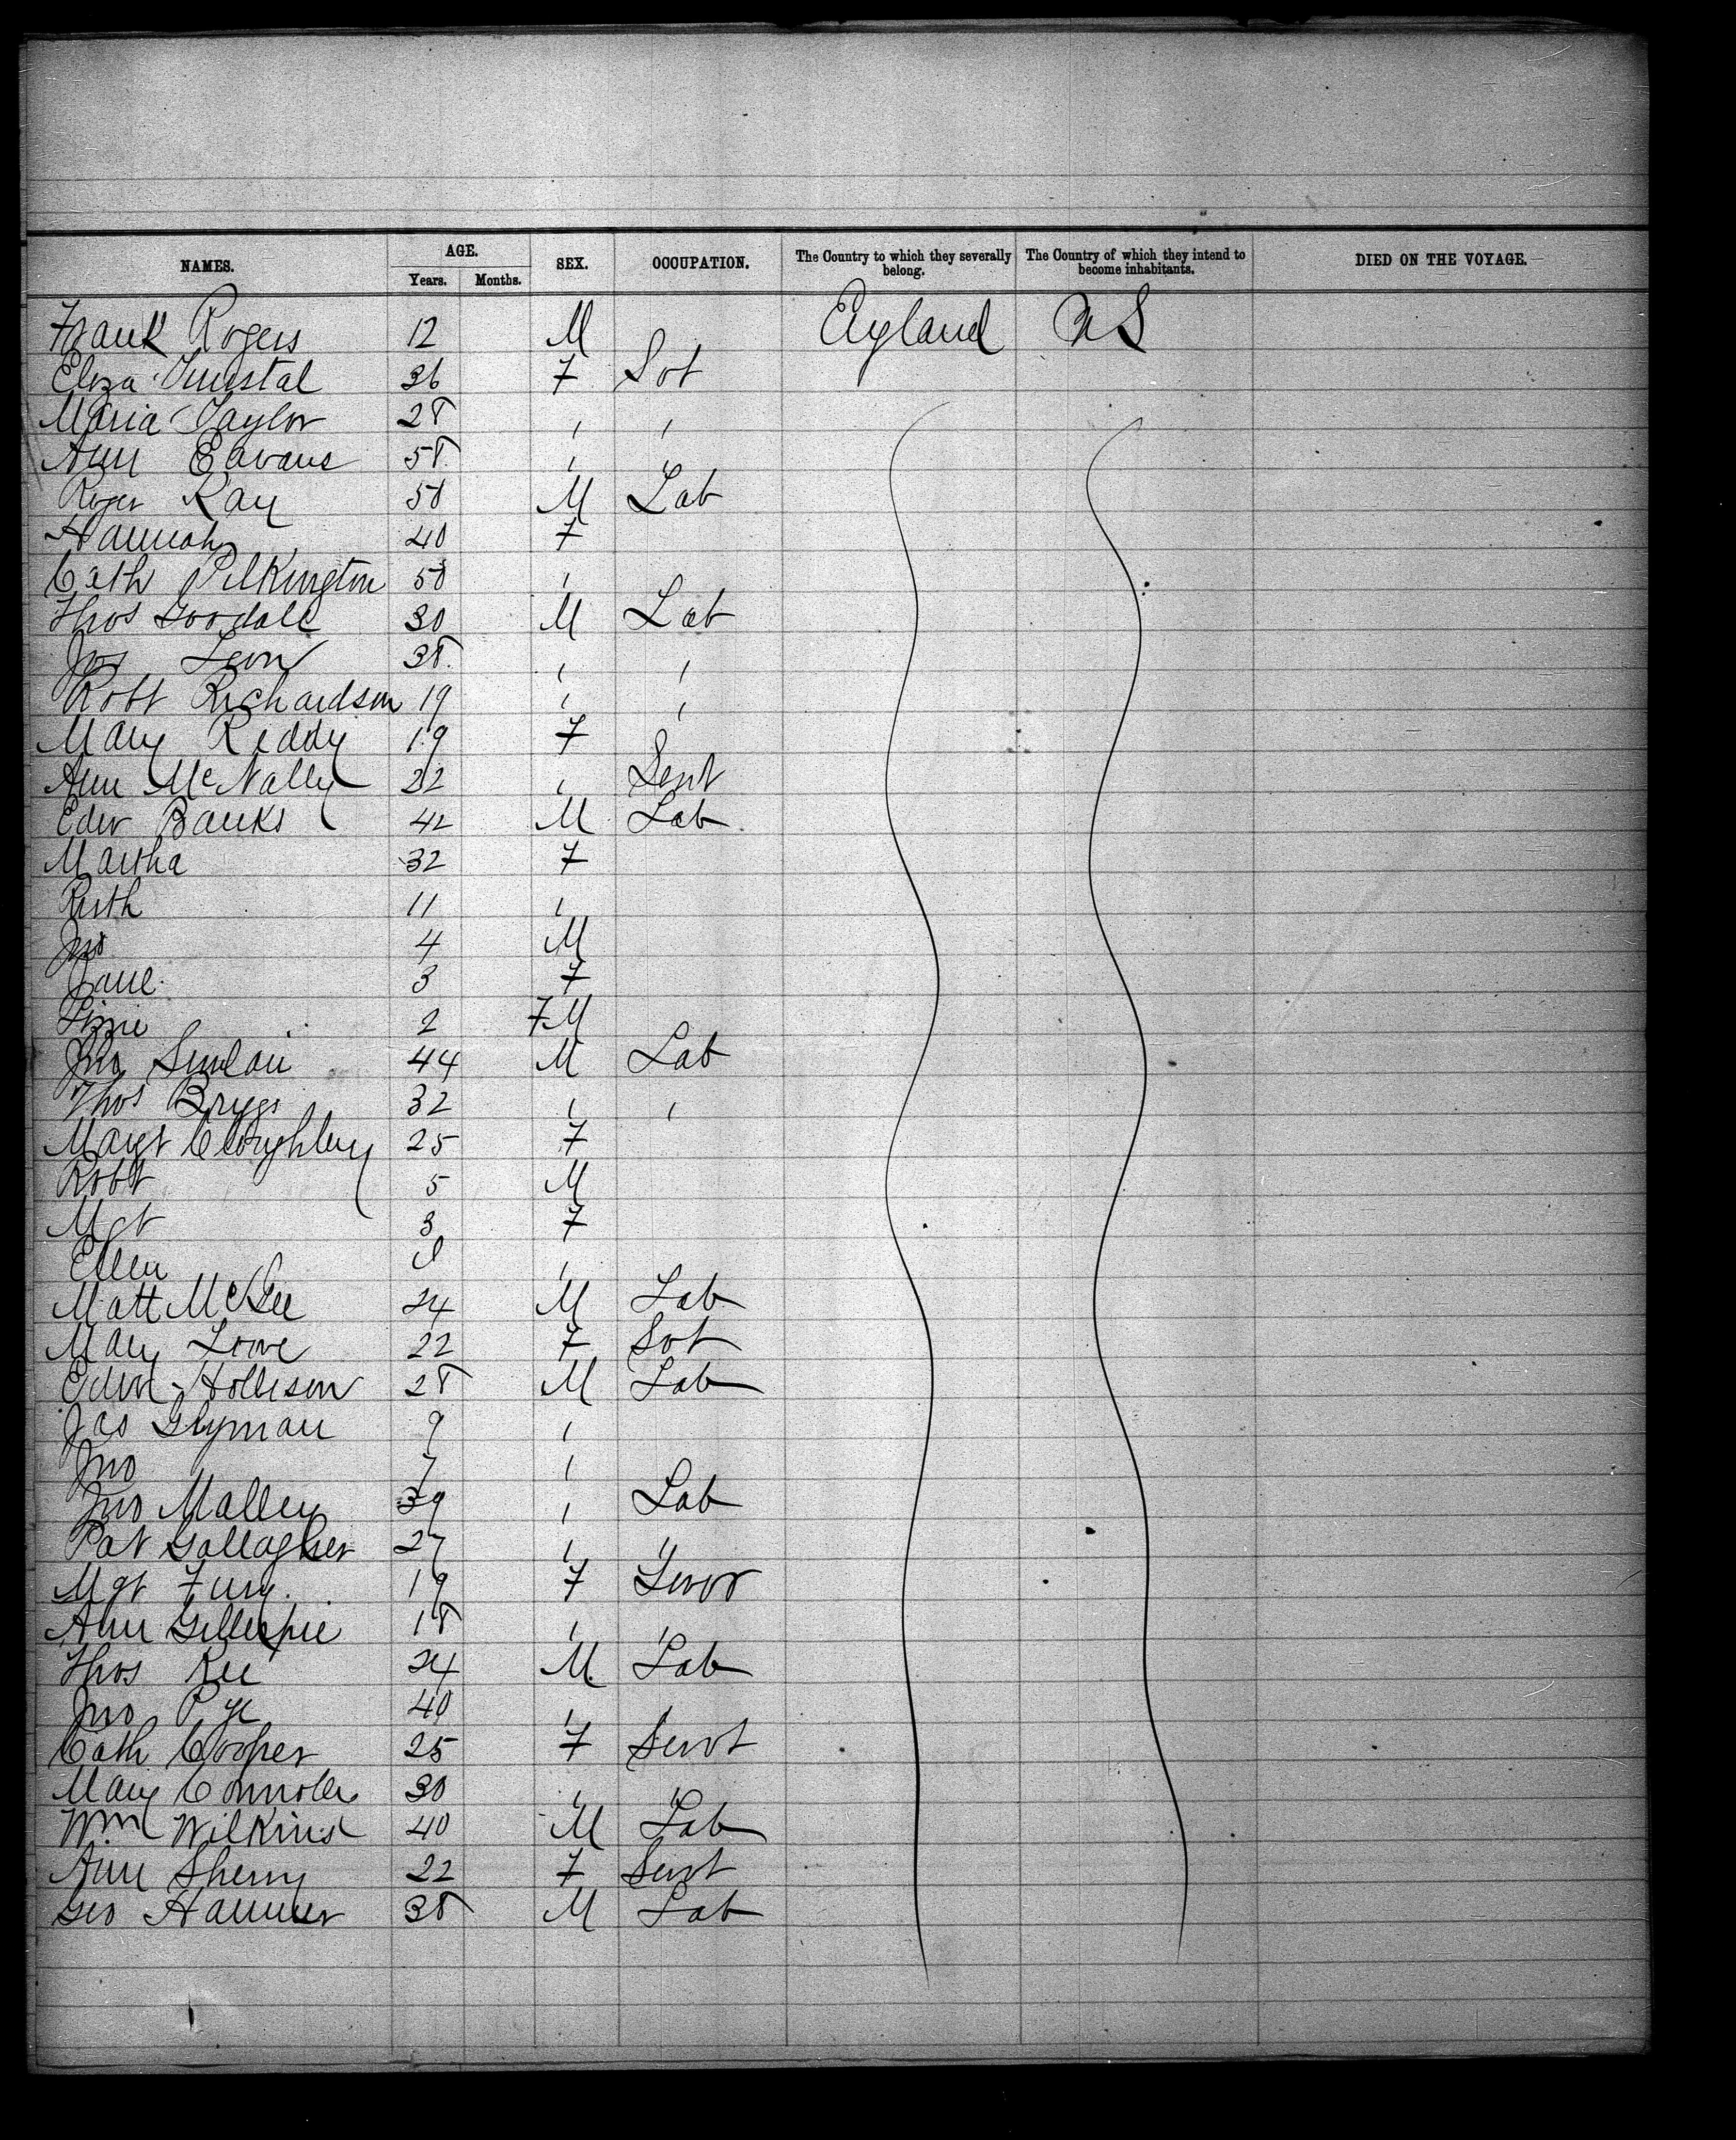 NAMES. AGE. SEX. OCCUPATION. The Country to which they severally belong. The Country of which they intend to become inhabitants. DIED ON THE VOYAGE.
Years. Months.
Frank Rogers 12 M England US
Eliza Tunstal 36 F Svt
Maria Taylor 28 " "
Ann Eavans 58 " "
Roger Ray 50 M Lab
Hannah 40 F
Cath Pilkington 50 "
Thos Goodall 30 M Lab
Jos 38 " "
Robt Richardson 19 " "
Mary Reddy 19 F
Ann McNally 22 " Sevt
Edw Banks 42 M Lab
Martha 32 F
Ruth 11 "
Jno 4 M
Jane 3 F
Lizzie 2 FM
Jno 44 M Lab
Thos Briggs 32 " "
Margt Cloughley 25 F
Robt 5 M
Mgt 3 F
Ellen "
Matt McGee 24 M Lab
Mary Lowe 22 F Svt
Edwd Hollison 28 M Lab
Jas Glyman 9 "
Jno 7 "
Jno Malley 39 " Lab
Pat Gallagher 27 " "
Mgt Fury 19 F
Ann Gillespie 18 " "
Thos Kee 24 M Lab
Jno Pye 40 "
Cath Cooper 25 F Servt
Mary 30 " "
Wm Wilkins 40 M Lab
Ann Sherry 22 F Servt
Geo Hanmer 38 M Lab